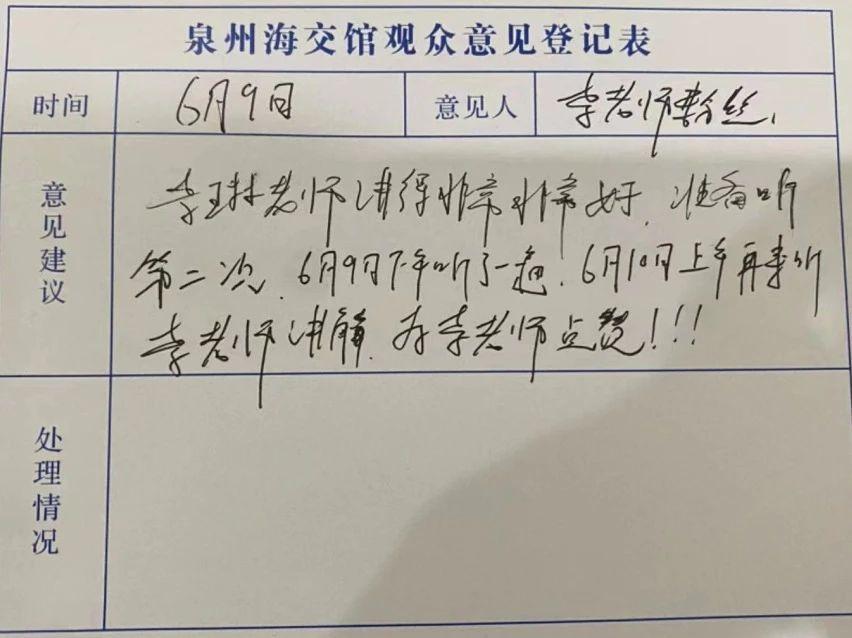 泉州海交馆观众意见登记表
时间 6月9日 意见人 李老师粉丝、
意见建议
李玉林老师讲得非常非常好、准备听
第二次、6月9日下午听了一遍、6月10日上午再来听
李老师讲解、为李老师点赞!!!
处理情况